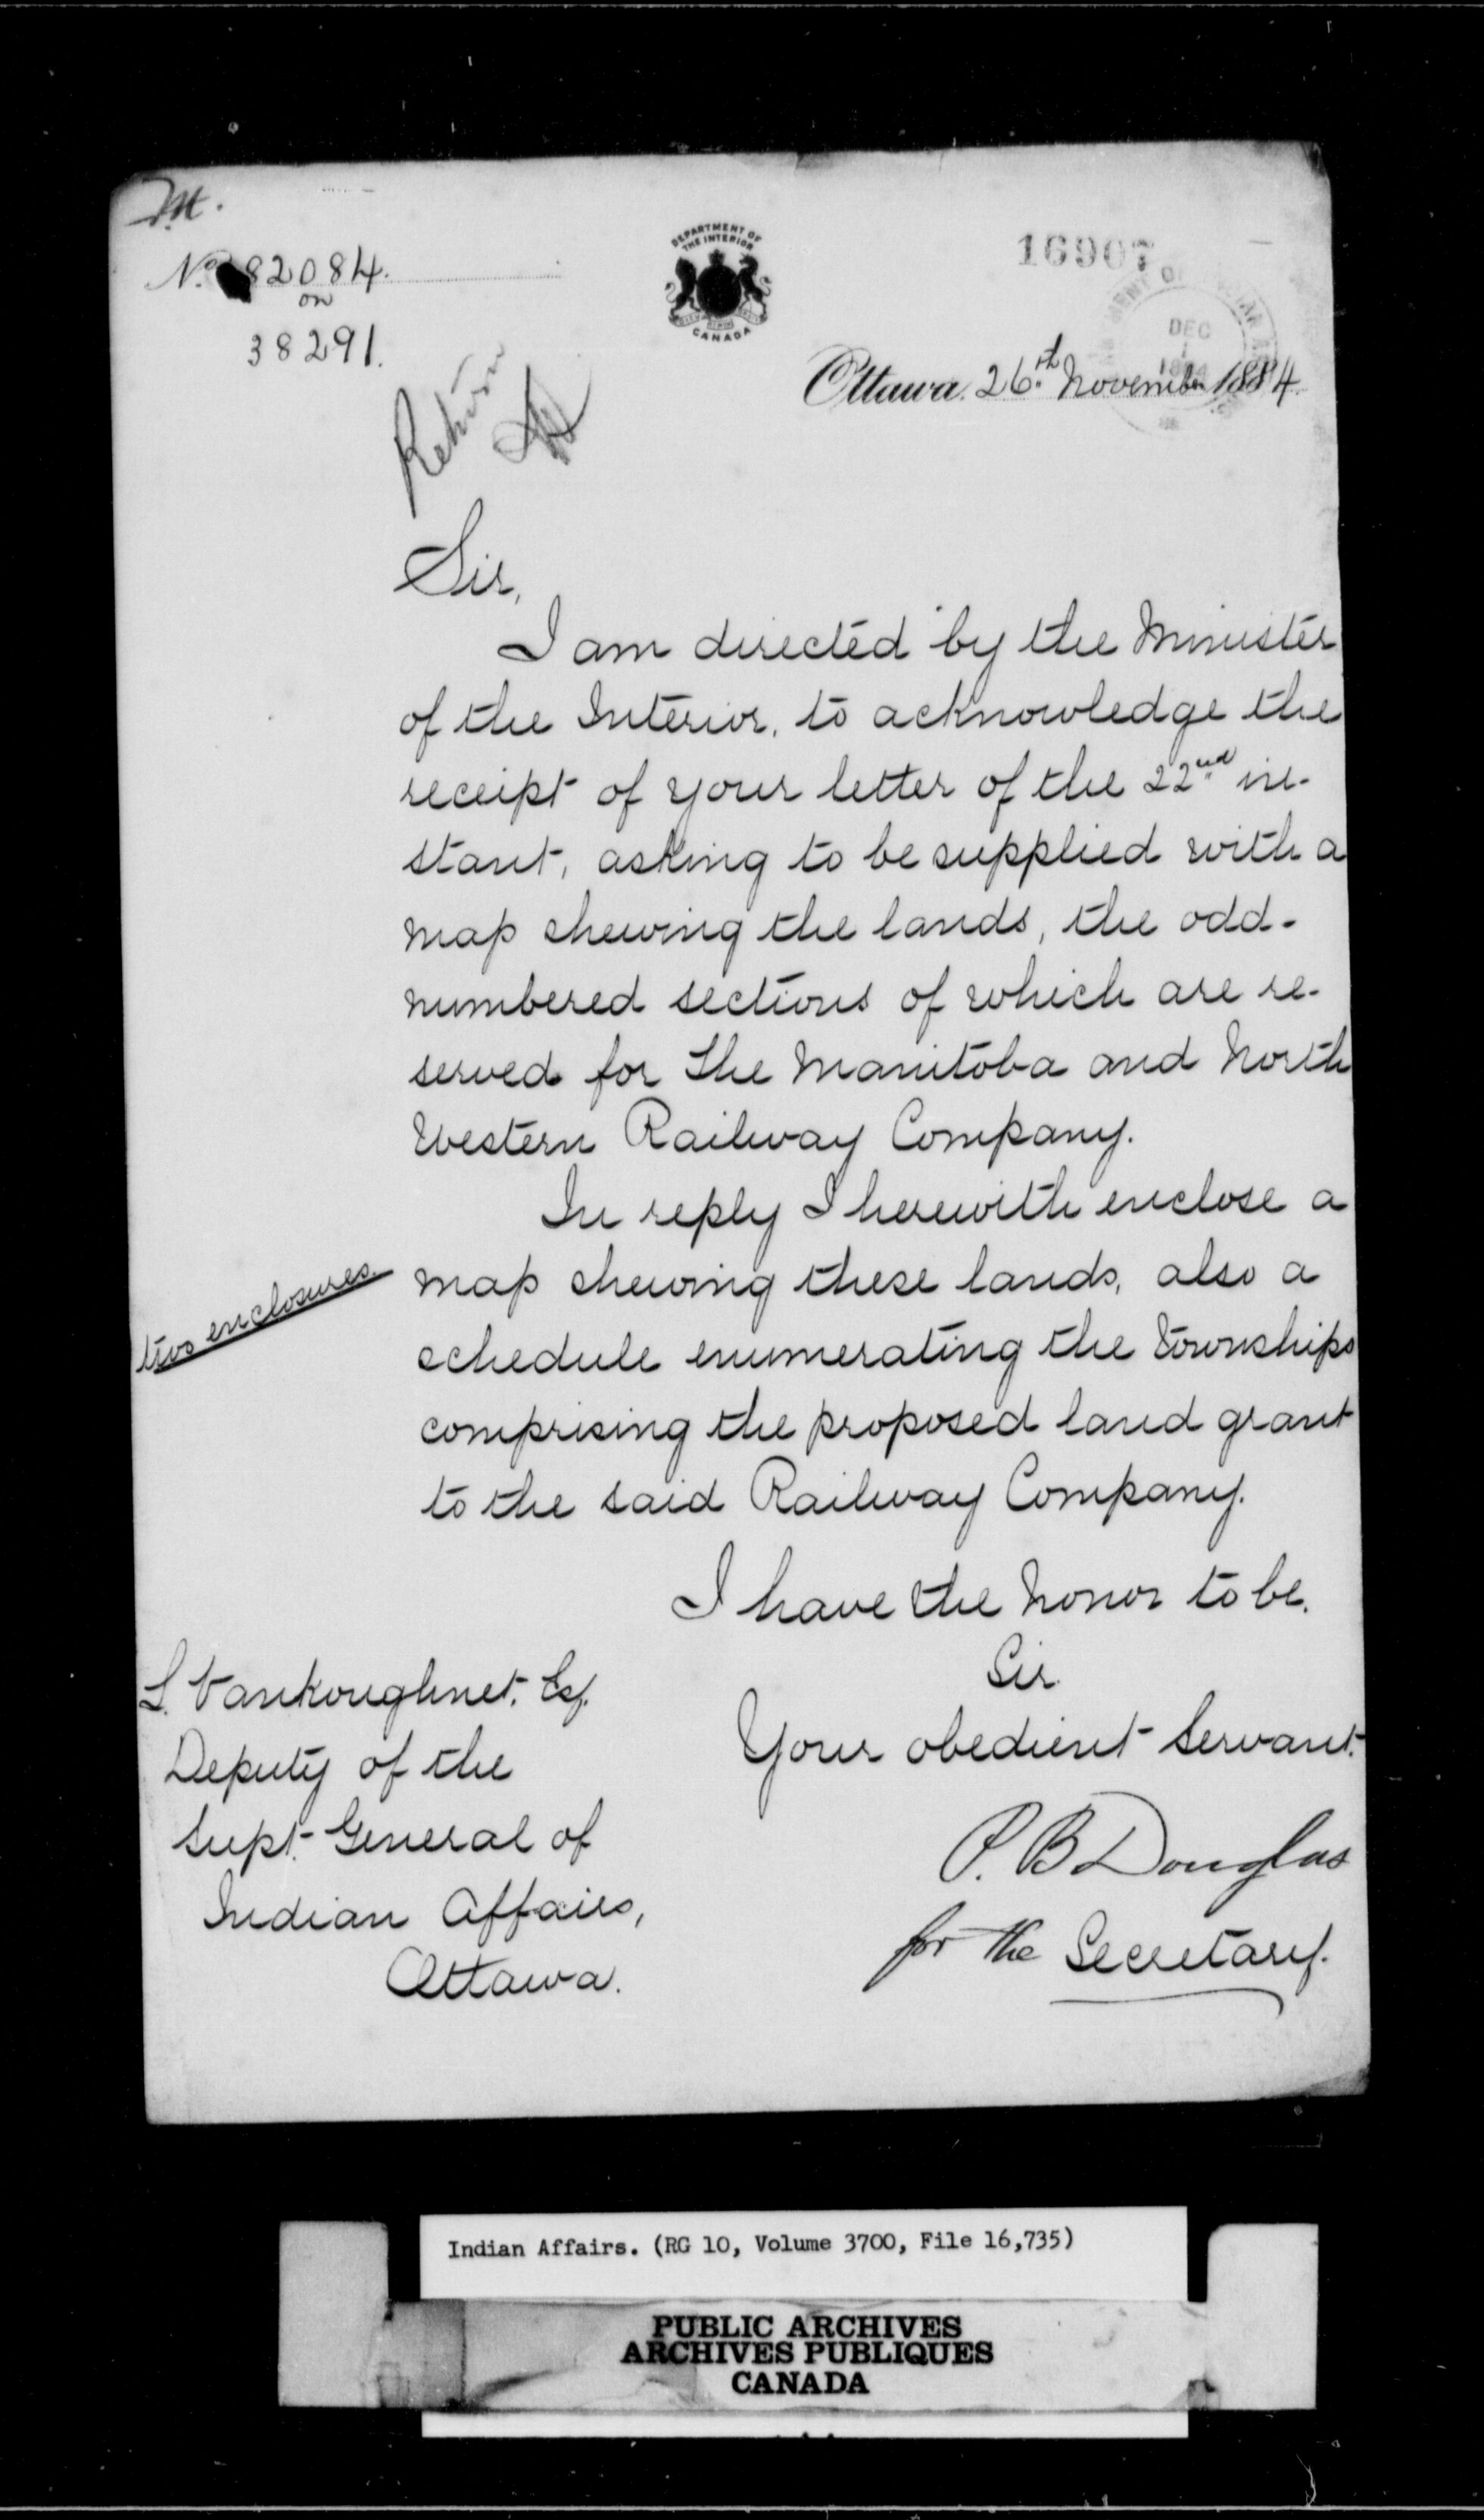 M.
No. 82084.
on
38291.
DEPARTMENT OF
THE INTERIOR
CANADA
16907
DEC
1
1884
Ottawa. 26th. November 1884.
Return
Sir,
I am directed by the Minister
of the Interior, to acknowledge the
receipt of your letter of the 22nd in-
stant, asking to be supplied with a
map shewing the lands, the odd-
numbered sections of which are re-
served for the Manitoba and North
Western Railway Company.
In reply I herewith enclose a
two enclosures.
map shewing these lands, also a
schedule enumerating the Townships
comprising the proposed land grant
to the said Railway Company.
I have the honor to be.
Sir
Your obedient Servant.
P. B Douglas
for the Secretary.
L. Vankoughnet. Esq.
Deputy of the
Supt. General of
Indian Affairs,
Ottawa.
Indian Affairs. (RG 10, Volume 3700, File 16,735)
PUBLIC ARCHIVES
ARCHIVES PUBLIQUES
CANADA